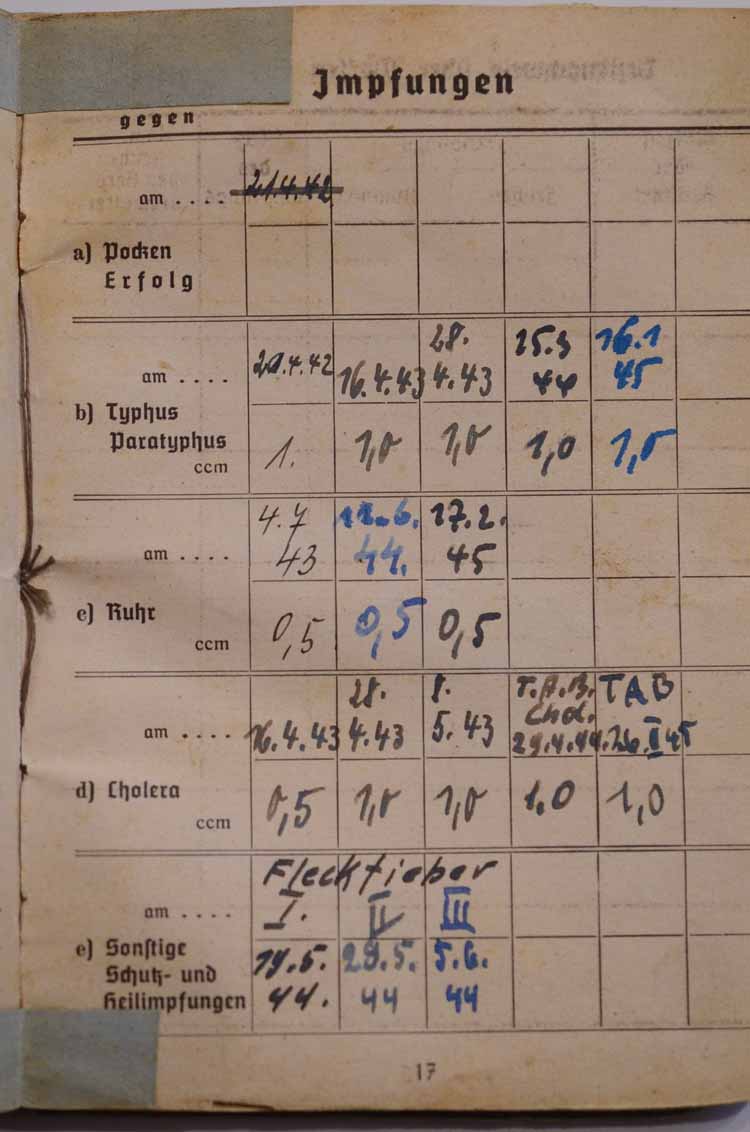 Impfungen
gegen
am .... 21.4.42
a) Pocken
Erfolg
28. 15.3 16.1
am .... 21.4.42 16.4.43 4.43 44 45
b) Typhus
Paratyphus
ccm 1. 1,0 1,0 1,0 1,0
4.7 11.6. 17.2.
am .... 43 44. 45
c) Ruhr
ccm 0,5 0,5 0,5
28. 8. T.A.B. TAB
Chol.
am .... 16.4.43 4.43 5.43 29.4.44. 26.II 45
d) Cholera
ccm 0,5 1,0 1,0 1.0 1,0
Fleckfieber
am .... I. II III
e) Sonstige 19.5. 29.5. 5.6.
Schutz- und
Heilimpfungen 44. 44 44
17